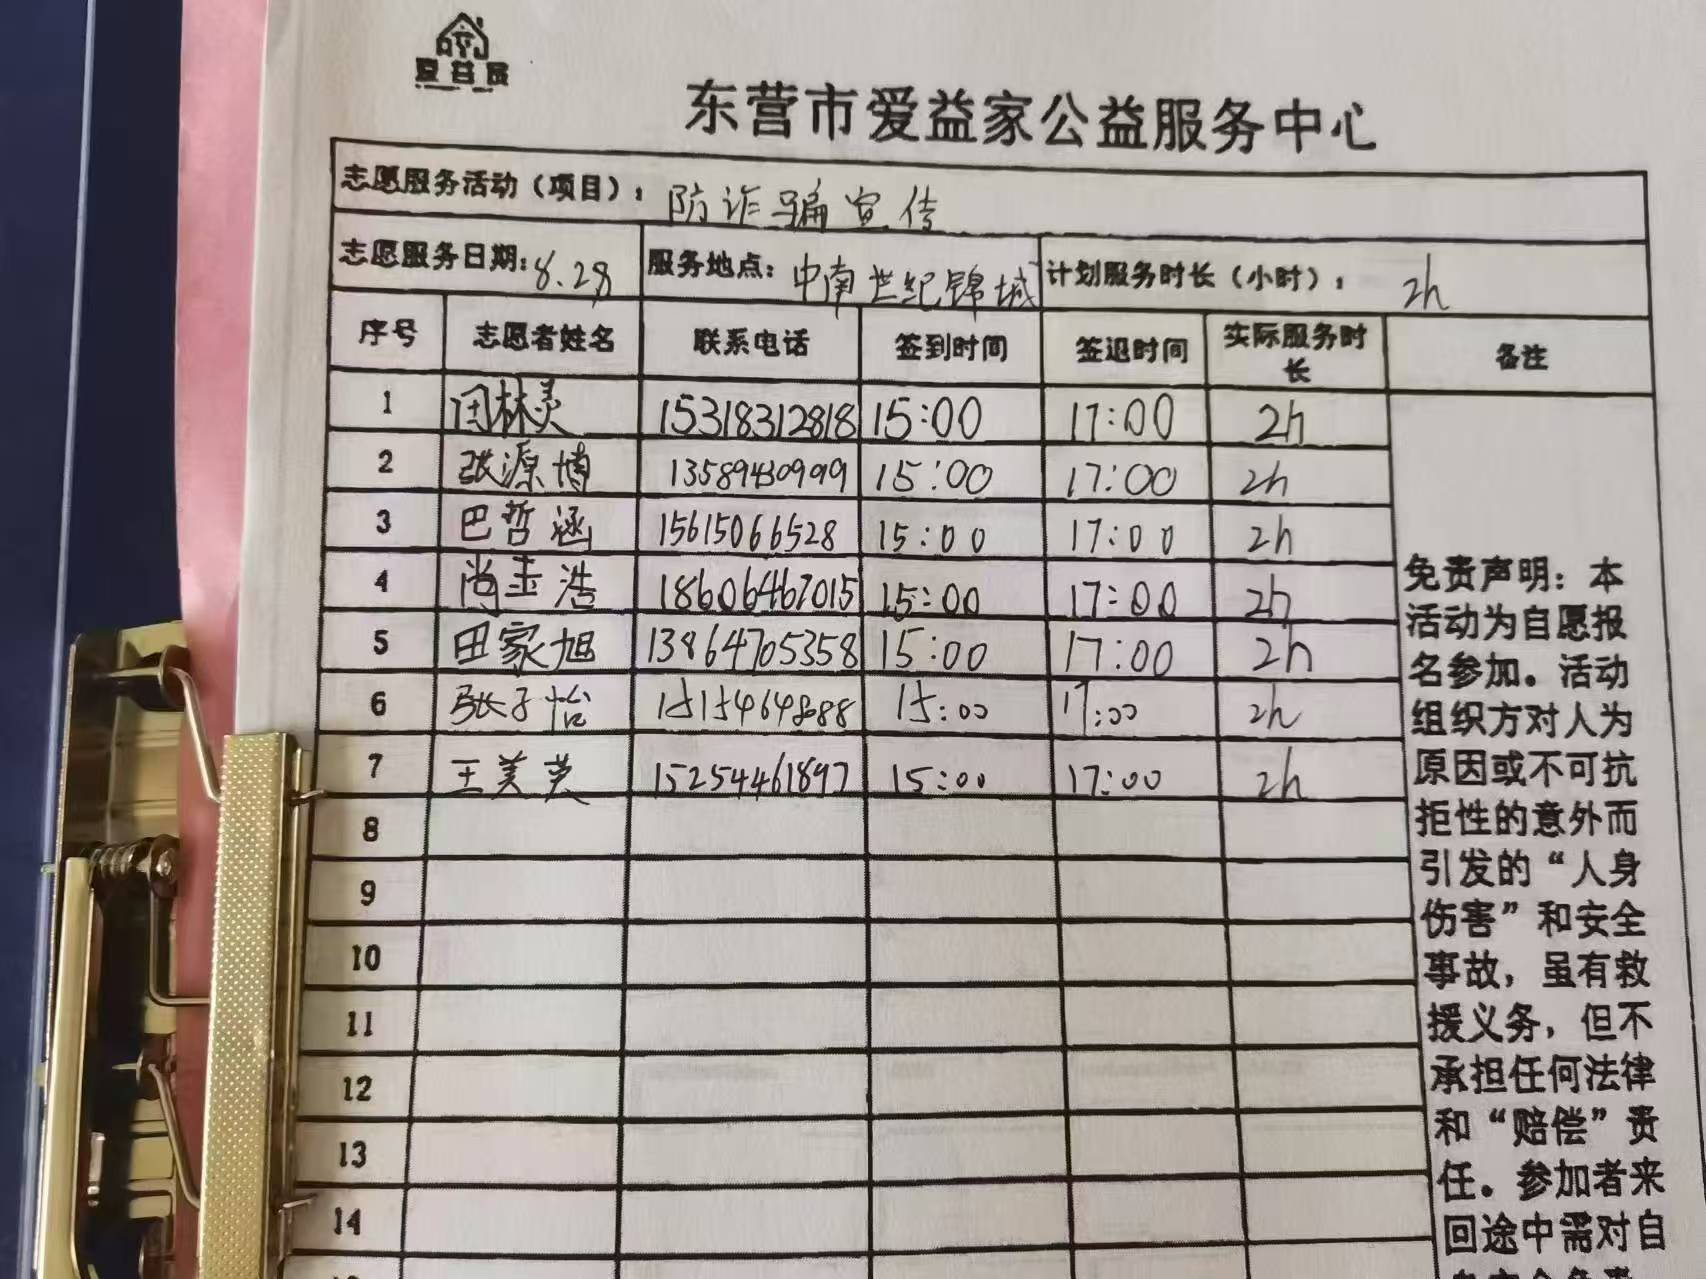 爱益家
东营市爱益家公益服务中心
志愿服务活动（项目）：防诈骗宣传
志愿服务日期：8.28 服务地点：中南世纪锦城 计划服务时长（小时）：2h
序号 志愿者姓名 联系电话 签到时间 签退时间 实际服务时长 备注
1 田林灵 15318312818 15:00 17:00 2h
2 张源博 13589430999 15:00 17:00 2h
3 巴哲涵 15615066528 15:00 17:00 2h
4 尚圭浩 18606467015 15:00 17:00 2h
5 田家旭 13864705358 15:00 17:00 2h
6 张子怡 15:00 17:00 2h
7 王美英 15254461897 15:00 17:00 2h
8
9
10
11
12
13
14
免责声明：本
活动为自愿报
名参加。活动
组织方对人为
原因或不可抗
拒性的意外而
引发的“人身
伤害”和安全
事故，虽有救
援义务，但不
承担任何法律
和“赔偿”责
任。参加者来
回途中需对自